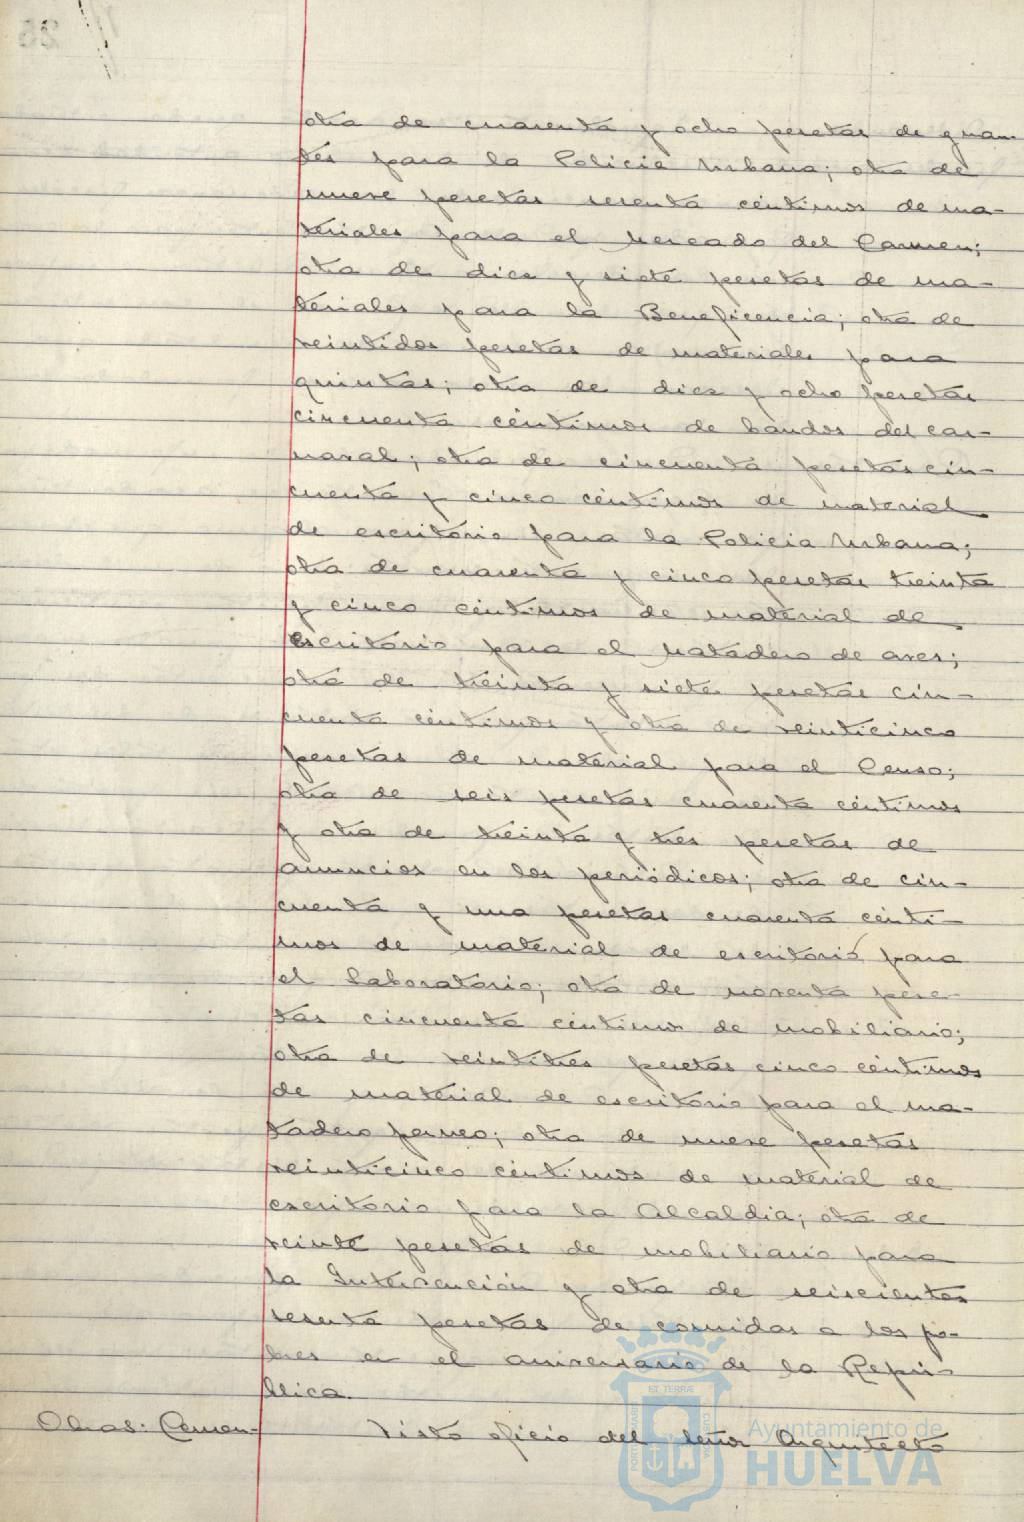 otra de cuarenta y ocho pesetas de guan-
tes para la Policia Urbana; otra de
nueve pesetas sesenta céntimos de ma-
teriales para el Mercado del Carmen;
otra de diez y siete pesetas de ma-
teriales para la Beneficencia; otra de
veintidos pesetas de materiales para
quintas; otra de diez y ocho pesetas
cincuenta céntimos de bandos del car-
naval; otra de cincuenta pesetas cin-
cuenta y cinco céntimos de material
de escritorio para la Policia Urbana;
otra de cuarenta y cinco pesetas treinta
y cinco céntimos de material de
escritorio para el Matadero de aves;
otra de treinta y siete pesetas cin-
cuenta céntimos y otra de veinticinco
pesetas de material para el Censo;
otra de seis pesetas cuarenta céntimos
y otra de treinta y tres pesetas de
anuncios en los periódicos; otra de cin-
cuenta y una pesetas cuarenta cénti-
mos de material de escritorio para
el Laboratorio; otra de noventa pese-
tas cincuenta céntimos de mobiliario;
otra de veintitres pesetas cinco céntimos
de material de escritorio para el ma-
tadero perneo; otra de nueve pesetas
veinticinco céntimos de material de
escritorio para la Alcaldia; otra de
veinte pesetas de mobiliario para
la Intervención y otra de seiscientas
sesenta pesetas de comidas a los po-
bres en el aniversario de la Repú-
blica.
Obras: Cemen-
Visto oficio del Señor Arquitecto
Ayuntamiento de
HUELVA